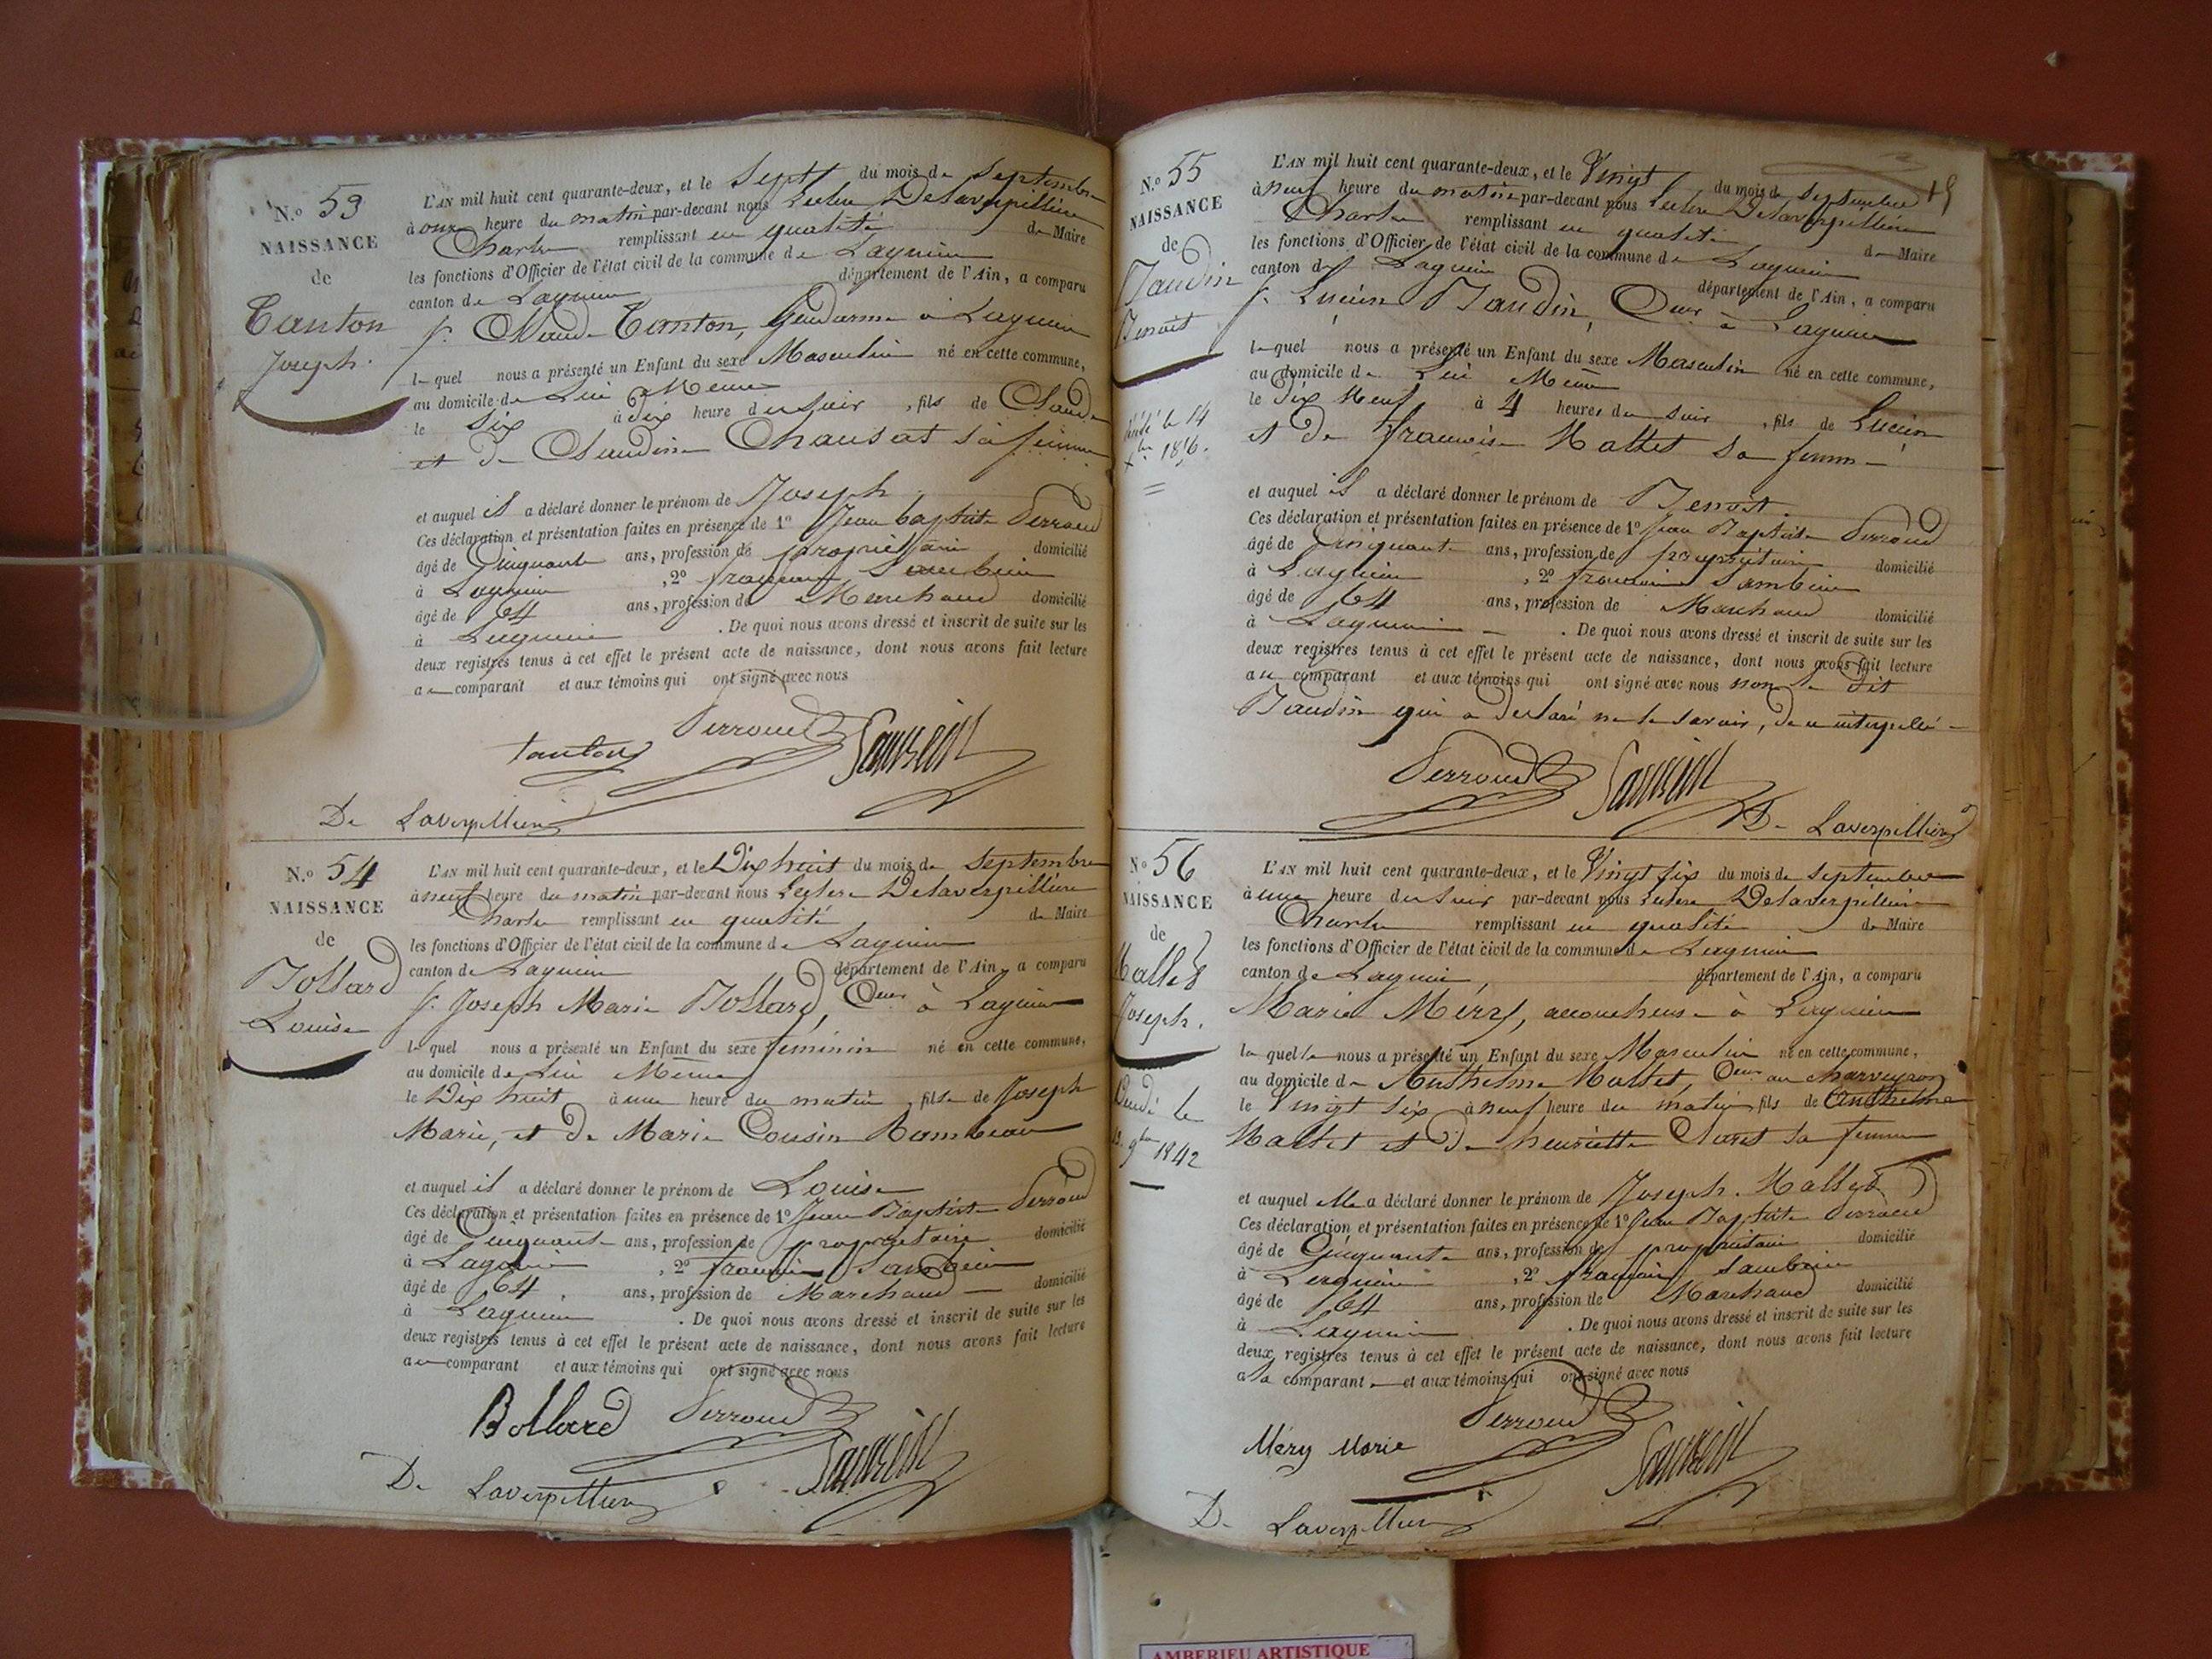 N.o 53
NAISSANCE
de
Tanton
Joseph.
L'AN mil huit cent quarante-deux, et le Sept du mois de Septembre
à onze heure du matin par-devant nous Leclerc Delaverpillière
Charles remplissant en qualité de Maire
les fonctions d'Officier de l'état civil de la commune de Lagnieu
canton de Lagnieu département de l'Ain, a comparu
s. Claude Tanton, Gendarme à Lagnieu
lequel nous a présenté un Enfant du sexe Masculin né en cette commune,
au domicile de Lui Même
le Six à dix heure du soir, fils de Claude
et de Claudine Chausat sa femme
et auquel il a déclaré donner le prénom de Joseph.
Ces déclaration et présentation faites en présence de 1o Jean baptiste Perroud
âgé de Cinquante ans, profession de propriétaire domicilié
à Lagnieu, 2o français Sambein
âgé de 64 ans, profession de Marchand domicilié
à Lagnieu. De quoi nous avons dressé et inscrit de suite sur les
deux registres tenus à cet effet le présent acte de naissance, dont nous avons fait lecture
au comparant et aux témoins qui ont signé avec nous
tanton Perroud Sambein
De Laverpilliere
N.o 54
NAISSANCE
de
Bollard
Louise
L'AN mil huit cent quarante-deux, et le Dix huit du mois de Septembre
à neuf heure du matin par-devant nous Leclerc Delaverpillière
Charles remplissant en qualité de Maire
les fonctions d'Officier de l'état civil de la commune de Lagnieu
canton de Lagnieu département de l'Ain, a comparu
s. Joseph Marie Bollard, Cteur à Lagnieu
lequel nous a présenté un Enfant du sexe féminin né en cette commune,
au domicile de Lui Même
le Dix huit à une heure du matin, fille de Joseph
Marie, et de Marie Cousin Rambeau
et auquel il a déclaré donner le prénom de Louise
Ces déclaration et présentation faites en présence de 1o Jean Baptiste Perroud
âgé de Cinquante ans, profession de propriétaire domicilié
à Lagnieu, 2o français Sambein
âgé de 64 ans, profession de Marchand domicilié
à Lagnieu. De quoi nous avons dressé et inscrit de suite sur les
deux registres tenus à cet effet le présent acte de naissance, dont nous avons fait lecture
au comparant et aux témoins qui ont signé avec nous
Bollard Perroud
De Laverpilliere Sambein
19
N.o 55
NAISSANCE
de
Baudin
Benoit
le 14
=
L'AN mil huit cent quarante-deux, et le Vingt du mois de Septembre
à neuf heure du matin par-devant nous Leclerc Delaverpillière
Charles remplissant en qualité de Maire
les fonctions d'Officier de l'état civil de la commune de Lagnieu
canton de Lagnieu département de l'Ain, a comparu
s. Lucien Baudin, Cteur à Lagnieu
lequel nous a présenté un Enfant du sexe Masculin né en cette commune,
au domicile de Lui Même
le Dix Neuf à 4 heures du soir, fils de Lucien
et de françoise Mallet sa femme
et auquel il a déclaré donner le prénom de Benoit.
Ces déclaration et présentation faites en présence de 1o Jean Baptiste Perroud
âgé de Cinquante ans, profession de propriétaire domicilié
à Lagnieu, 2o français Sambein
âgé de 64 ans, profession de Marchand domicilié
à Lagnieu. De quoi nous avons dressé et inscrit de suite sur les
deux registres tenus à cet effet le présent acte de naissance, dont nous avons fait lecture
au comparant et aux témoins qui ont signé avec nous non le dit
Baudin qui a déclaré ne le savoir, de ce interpellé
Perroud Sambein
De Laverpilliere
N.o 56
NAISSANCE
de
Mallet
Joseph.
le
9bre 1842
L'AN mil huit cent quarante-deux, et le Vingt six du mois de Septembre
à une heure du soir par-devant nous Leclerc Delaverpillière
Charles remplissant en qualité de Maire
les fonctions d'Officier de l'état civil de la commune de Lagnieu
canton de Lagnieu département de l'Ain, a comparu
Marie Méry, accoucheuse à Lagnieu
laquelle nous a présenté un Enfant du sexe Masculin né en cette commune,
au domicile de Anthelme Mallet, Cteur au charveyron
le Vingt Six à neuf heure du matin, fils de Anthelme
Mallet et de henriette Claret sa femme
et auquel elle a déclaré donner le prénom de Joseph. Mallet
Ces déclaration et présentation faites en présence de 1o Jean Baptiste Perroud
âgé de Cinquante ans, profession de propriétaire domicilié
à Lagnieu, 2o français Sambein
âgé de 64 ans, profession de Marchand domicilié
à Lagnieu. De quoi nous avons dressé et inscrit de suite sur les
deux registres tenus à cet effet le présent acte de naissance, dont nous avons fait lecture
a la comparante et aux témoins qui ont signé avec nous
Méry Marie Perroud Sambein
De Laverpilliere
AMBERIEU ARTISTIQUE